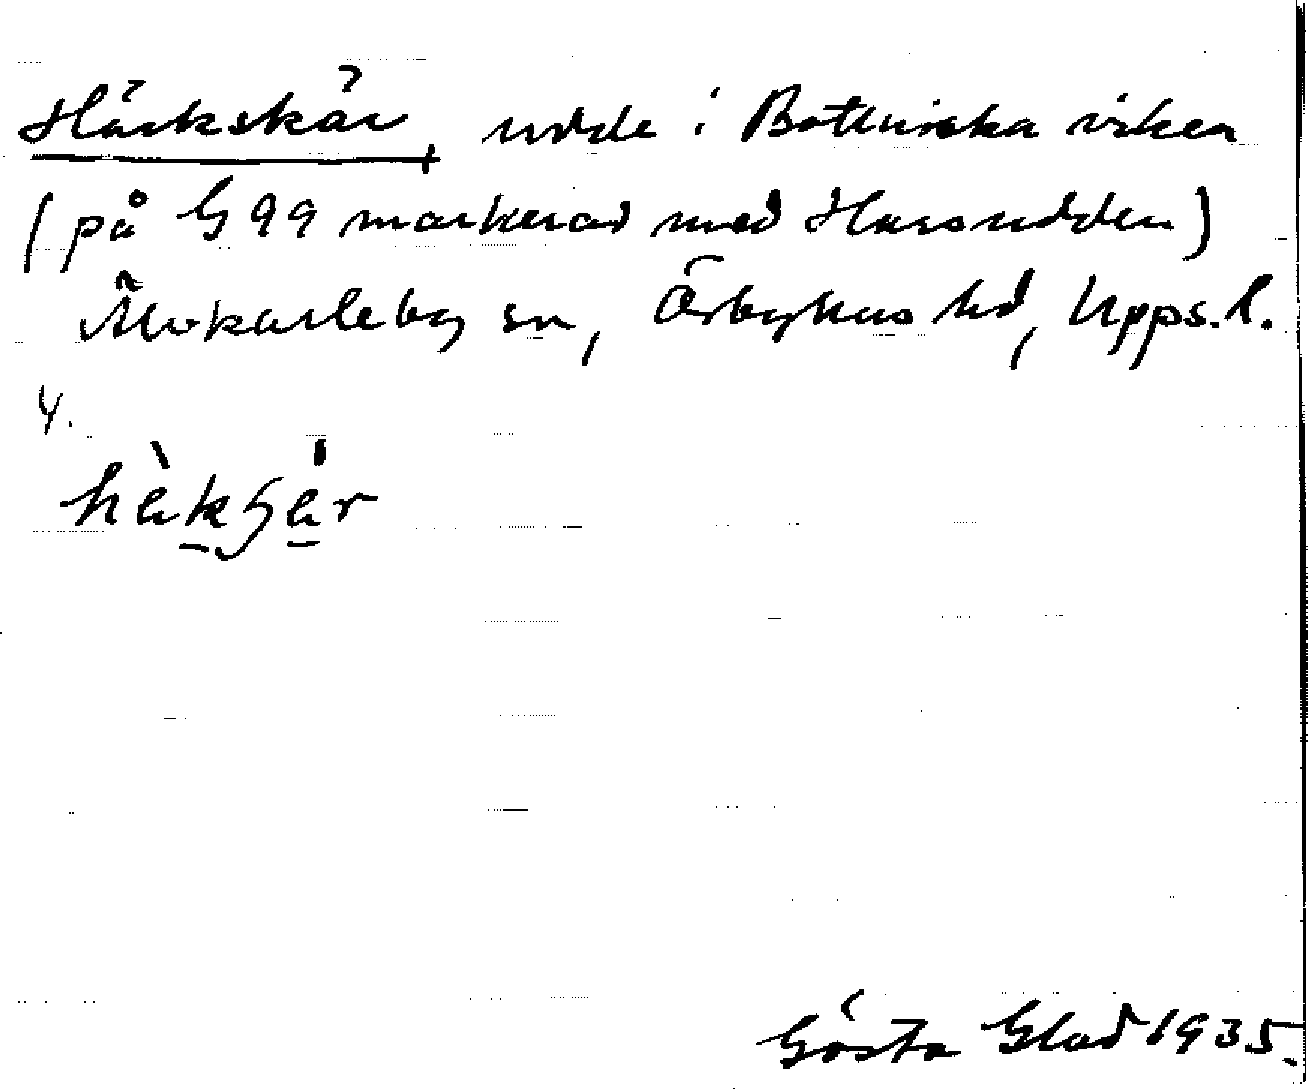 Härkskär, udde i Bottniska viken
(på G 99 markerad med Husudden)
Älvkarleby sn, Örbyhus hd, Upps. l.
4.
hä̀kʂä̀r
Gösta Glad 1935.